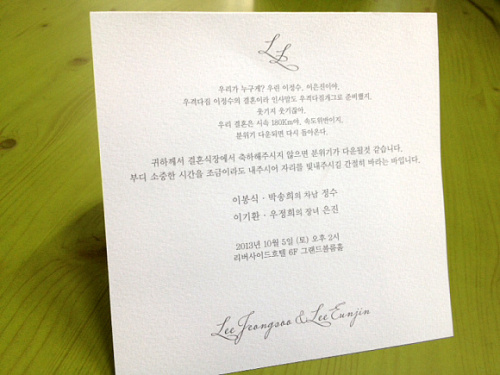 L L
우리가 누구게? 우린 이정수, 이은진이야.
우격다짐 이정수의 결혼이라 인사말도 우격다짐개그로 준비했지.
웃기지 웃기잖아.
우리 결혼은 시속 180Km야, 속도위반이지.
분위기 다운되면 다시 돌아온다.
귀하께서 결혼식장에서 축하해주시지 않으면 분위기가 다운될것 같습니다.
부디 소중한 시간을 조금이라도 내주시어 자리를 빛내주시길 간절히 바라는 바입니다.
이봉식 · 박송희의 차남 정수
이기환 · 우정희의 장녀 은진
2013년 10월 5일 (토) 오후 2시
리버사이드호텔 6F 그랜드볼룸홀
Lee Jeongsoo & Lee Eunjin